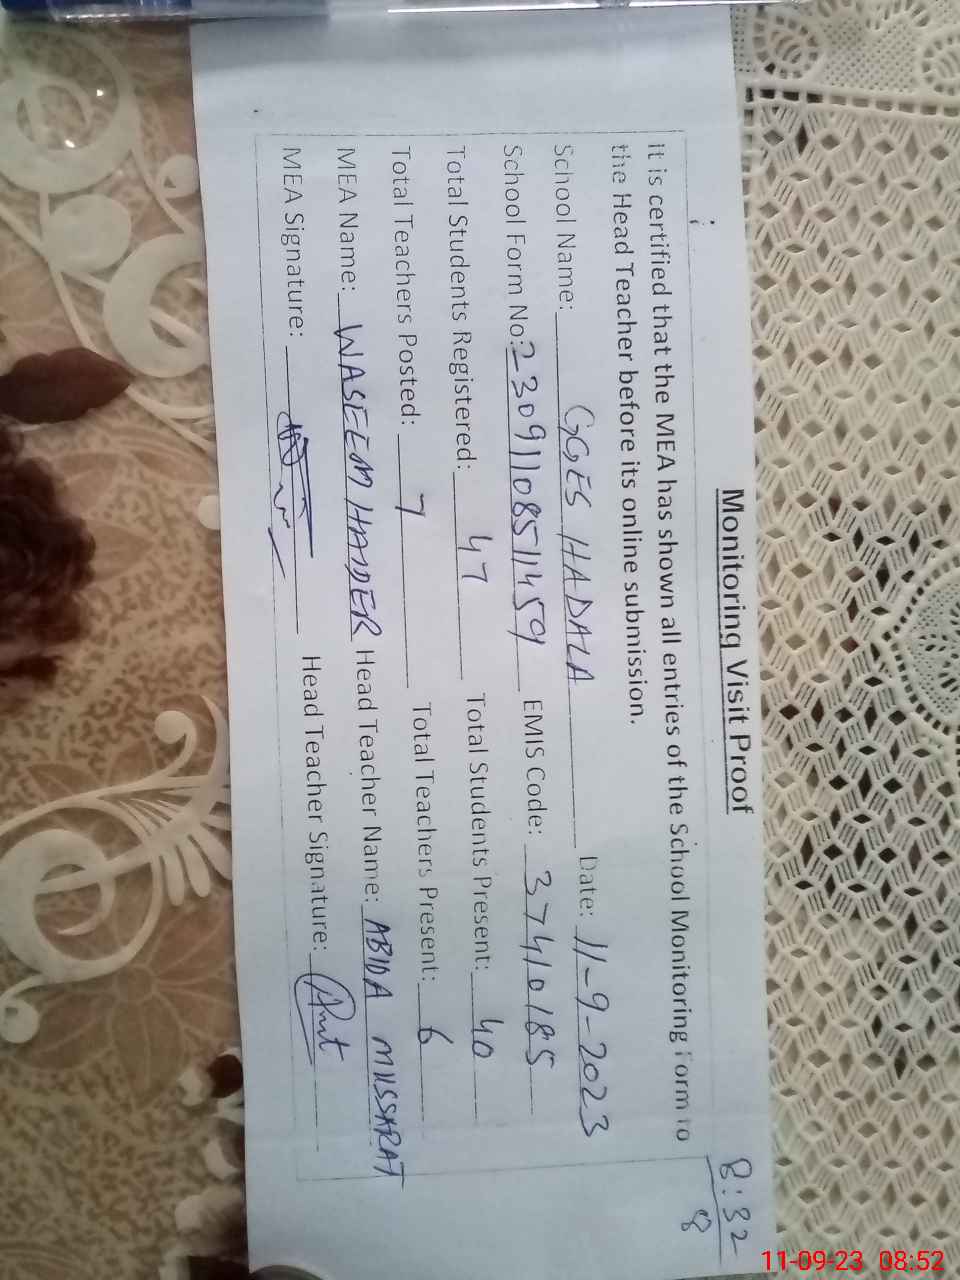 8:32
8
Monitoring Visit Proof
It is certified that the MEA has shown all entries of the School Monitoring Form to
the Head Teacher before its online submission.
School Name: GGES HADALA Date: 11-9-2023
School Form No: 23091108511459 EMIS Code: 37410185
Total Students Registered: 47 Total Students Present: 40
Total Teachers Posted: 7 Total Teachers Present: 6
MEA Name: WASEEM HAIDER Head Teacher Name: ABIDA MUSSARAT
MEA Signature: Head Teacher Signature:
11-09-23 08:52